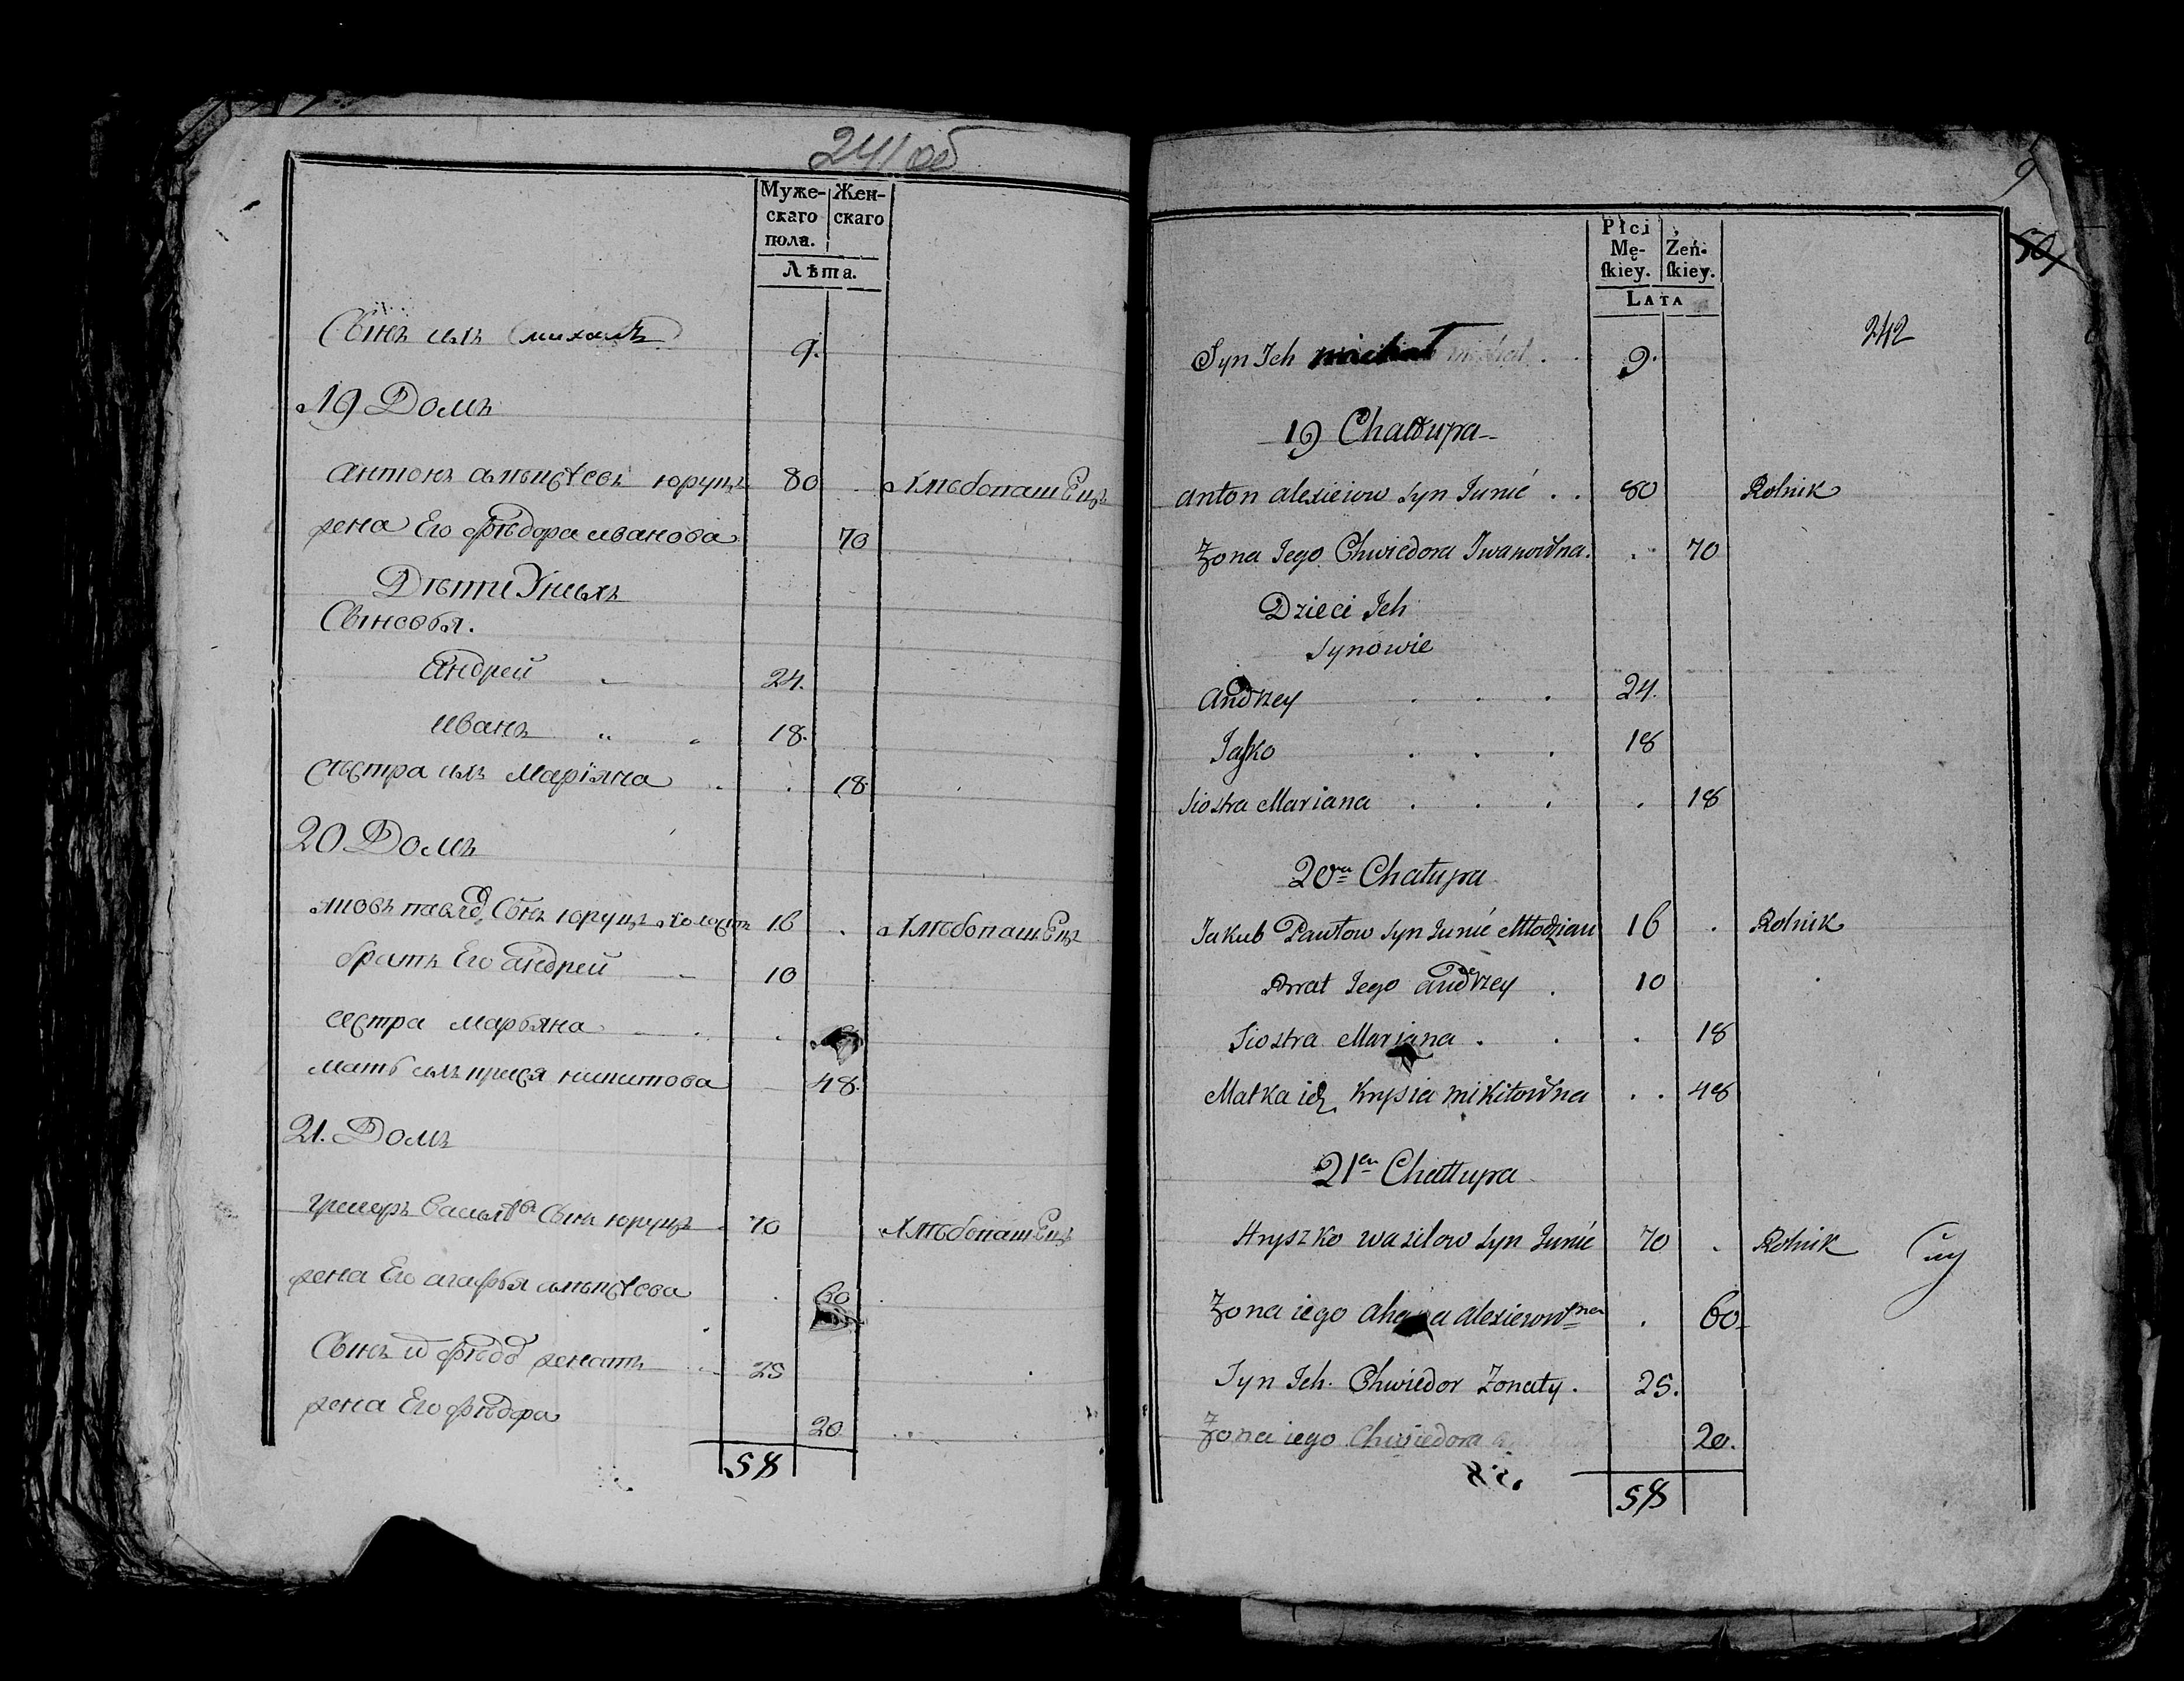 241 об
Муже-
скаго
пола.
Жен-
скаго
Лѣта.
Сынъ ихъ Михалъ 9.
19 Домъ
Антонъ Юруць 80 Хлебопашець
жена Его Фѣдора Иванова 70
Дѣти Уныхъ
Сыновья.
Андрей 24.
Иванъ 18.
сѣстра ихъ Маріяна 18.
20 Домъ
Сынъ Юруць Холостъ 16 Хлебопашець
братъ Его Андрей 10
сестра Марьяна
мать ихъ никитова 48.
21. Домъ
Сынъ Юруць 70 Хлебопашець
жена Его агафья 60
Сынъ женатъ 25
жена Его Фѣдора 20
58
9
Płci
Mę-
ſkiey.
Żeń-
ſkiey.
LATA
50
242
Syn Ich michał michał 9.
19 Chałupa
Anton Alexieiow Syn Junić 80 Rolnik
Żona Jego Chwiedora Iwanowna 70
Dzieci Ich
Synowie
Andrzey 24.
Jaſko 18
Siostra Mariana 18
20ta Chałupa
Jakub Pawłow Syn Junić Młodzian 16 Rolnik
Brat Jego Andrzey 10
Siostra Marjana 18
Matka ich Krysia mikitowna 48
21a Chałłupa
Hryszko wasilow Syn Junić 70 Rolnik
Żona iego alexieiowna 60
Syn Ich Chwiedor Żonaty 25.
Żona iego Chwiedora 20.
58